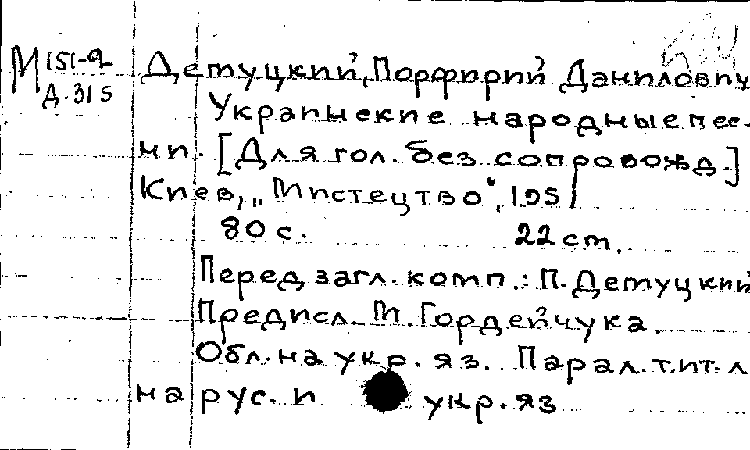 М 151-9
Д-315
Демуцкий, Порфирий Данилович
Украинские народные пес-
ни. [Для гол. без сопровожд.]
Киев, „Мистецтво", 1951
80 с. 22 см.
Перед загл. комп.: П. Демуцкий
Предисл. М. Гордейчука.
Обл. на укр. яз. Парал. тит. л
на рус. и укр. яз